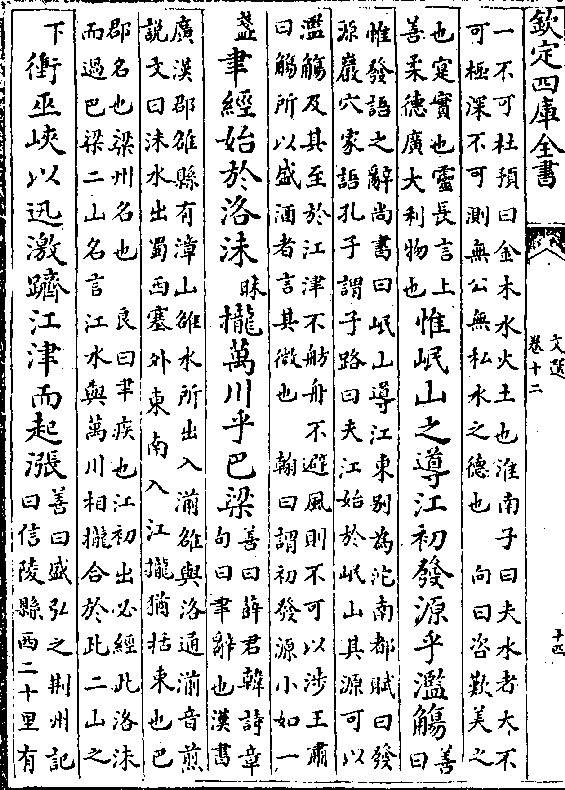 欽定四庫全書
文選
卷十二
十四
一不可杜預曰金木水火土也淮南子曰夫水者大不
可極深不可測無公無私水之德也　向曰咨歎美之
也寔實也靈長言上
善柔德廣大利物也
惟岷山之導江初發源乎濫觴
善
曰
惟發語之辭尚書曰岷山導江東别為沱南都賦曰發
源巖穴家語孔子謂子路曰夫江始於岷山其源可以
濫觴及其至於江津不舫舟不避風則不可以涉王肅
曰觴所以盛酒者言其微也　翰曰謂初發源小如一
盞
聿經始於洛沬
昧
攏萬川乎巴梁
善曰薛君韓詩章
句曰聿辭也漢書
廣漢郡雒縣有漳山雒水所出入湔雒與洛通湔音煎
說文曰沬水出蜀西塞外東南入江攏猶括束也巴
郡名也梁州名也　良曰聿疾也江初出必經此洛沬
而過巴梁二山名言江水與萬川相攏合於此二山之
下
衝巫峽以迅激躋江津而起漲
善曰盛弘之荆州記
曰信陵縣西二十里有